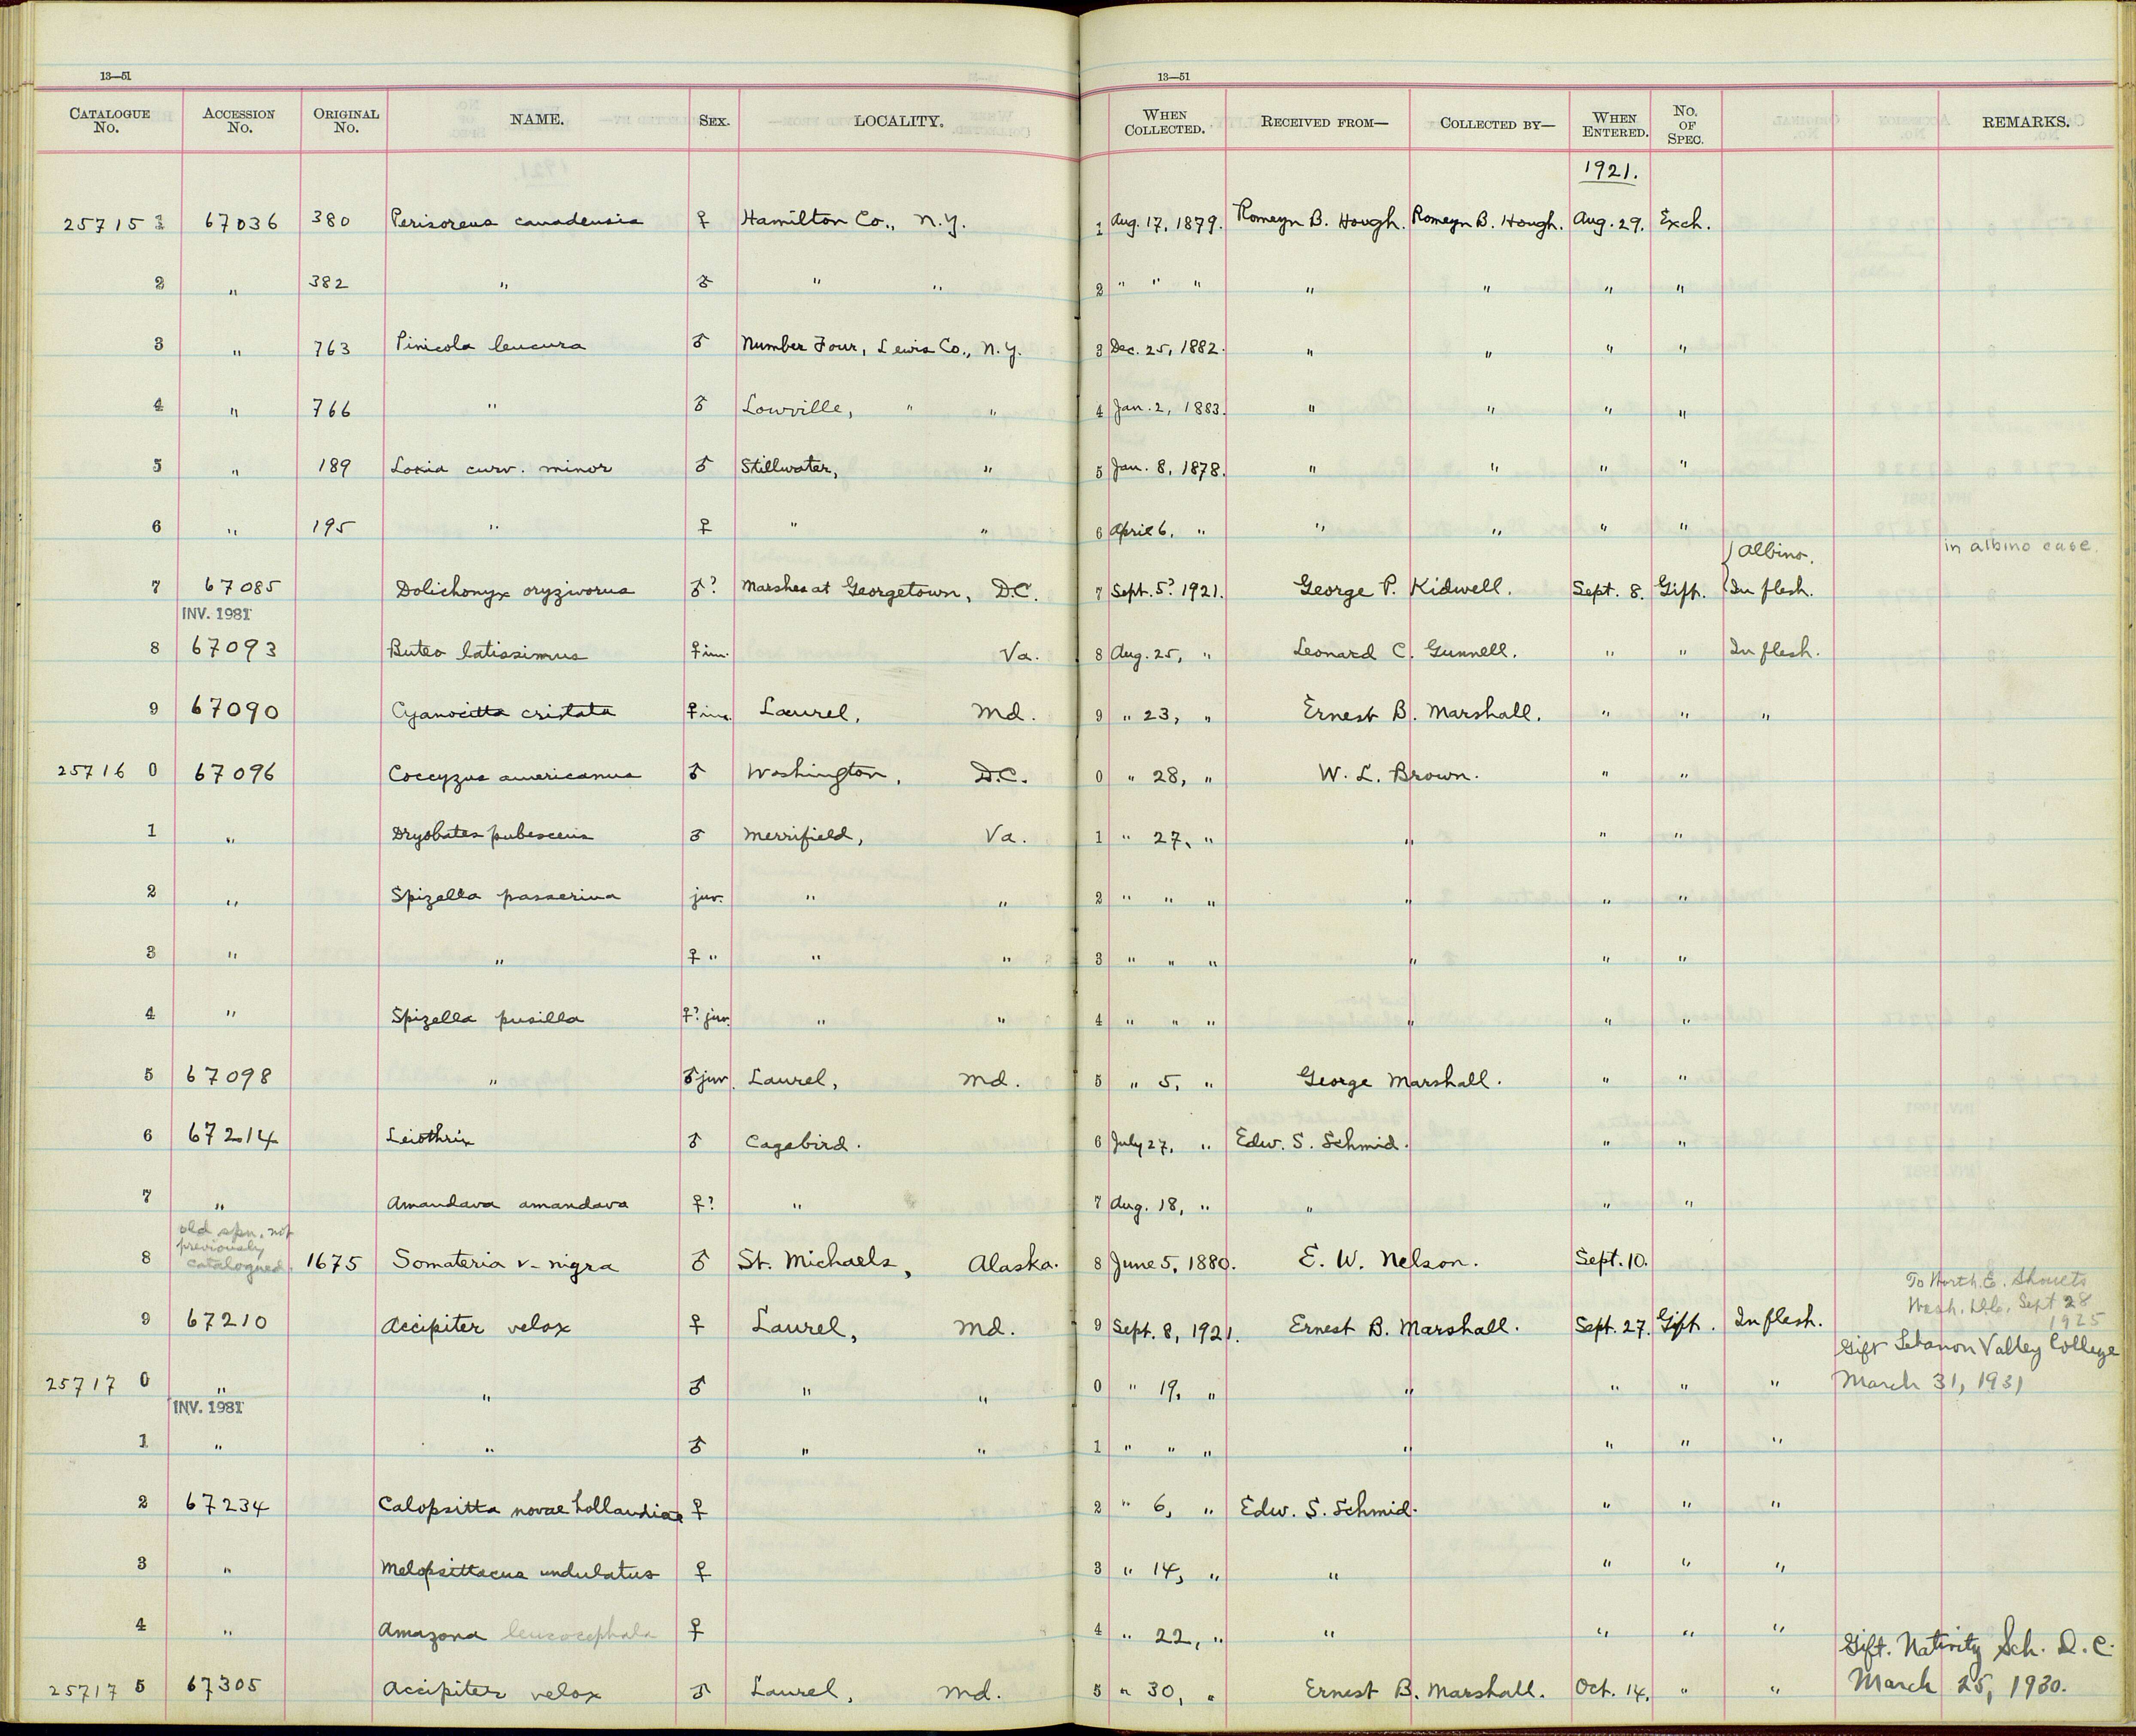 13—51 13—51
CATALOGUE No. ACCESSION No. ORIGINAL No. NAME. SEX. LOCALITY. WHEN COLLECTED. RECEIVED FROM— COLLECTED BY— WHEN ENTERED. No. OF SPEC. REMARKS.
1921.
25715 1 67036 380 Perisoreus canadensis ♀ Hamilton Co., N.Y. 1 Aug. 17, 1879. Romeyn B. Hough. Romeyn B. Hough. Aug. 29. Exch.
2 " 382 " ♂ " " 2 " " " " " " "
3 " 763 Pinicola leucura ♂ Number Four, Lewis Co., N.Y. 3 Dec. 25, 1882. " " " "
4 " 766 " ♂ Lowville, " " 4 Jan. 2, 1883. " " " "
5 " 189 Loxia curv. minor ♂ Stillwater, " 5 Jan. 8, 1878. " " " "
6 " 195 " ♀ " " 6 April 6, " " " " "
Albino. in albino case.
7 67085 Dolichonyx oryzivorus ♂? Marshes at Georgetown, D.C. 7 Sept. 5? 1921. George P. Kidwell. Sept. 8. Gift. In flesh.
INV. 1981
8 67093 Buteo latissimus ♀ im. Va. 8 Aug. 25, " Leonard C. Gunnell. " " In flesh.
9 67090 Cyanocitta cristata ♀ im. Laurel, Md. 9 " 23, " Ernest B. Marshall. " " "
25716 0 67096 Coccyzus americanus ♂ Washington, D.C. 0 " 28, " W. L. Brown. " "
1 " Dryobates pubescens ♂ Merrifield, Va. 1 " 27, " " " "
2 " Spizella passerina juv. " " 2 " " " " " "
3 " " ♀ " " " 3 " " " " " "
4 " Spizella pusilla ♀? juv. " " 4 " " " " " "
5 67098 " ♂ juv. Laurel, Md. 5 " 5, " George Marshall. " "
6 67214 Leiothrix ♂ Cagebird. 6 July 27, " Edw. S. Schmid. " "
7 " Amandava amandava ♀? " 7 Aug. 18, " " " "
old spn. not
previously
catalogued.
8 1675 Somateria v-nigra ♂ St. Michaels, Alaska. 8 June 5, 1880. E. W. Nelson. Sept. 10.
To Worth. E. Shoults
Wash. D.C., Sept 28
1925
9 67210 Accipiter velox ♀ Laurel, Md. 9 Sept. 8, 1921. Ernest B. Marshall. Sept. 27. Gift. In flesh.
Gift Lebanon Valley College
25717 0 " " ♂ " " 0 " 19, " " " " " March 31, 1931
INV. 1981
1 " " ♂ " " 1 " " " " " " "
2 67234 Calopsitta novae hollandiae ♀ 2 " 6, " Edw. S. Schmid. " " "
3 " Melopsittacus undulatus ♀ 3 " 14, " " " " "
4 " Amazona leucocephala ♀ 4 " 22, " " " " "
Gift. Nativity Sch. D.C.
25717 5 67305 Accipiter velox ♂ Laurel, Md. 5 " 30, " Ernest B. Marshall. Oct. 14. " " March 25, 1930.